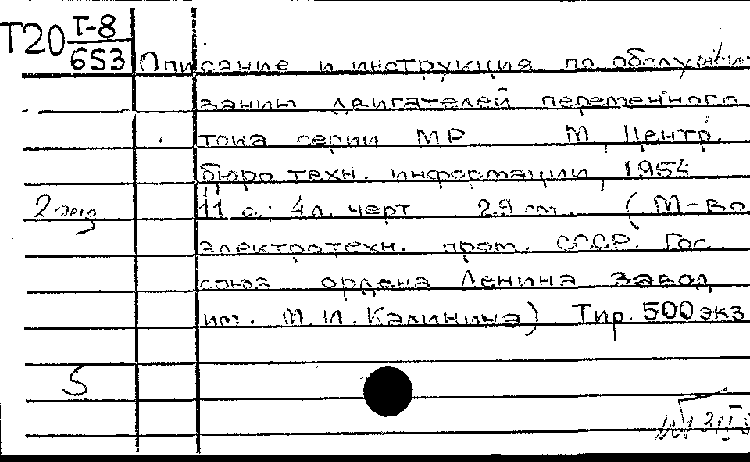 Т20 Т-8
653
Описание и инструкция по обслужи-
ванию двигателей переменного
тока серии МР М, Центр.
бюро техн. информации, 1954
2 экз 11 с. 4 л. черт 29 см. (М-во
электротехн. пром. СССР. Гос.
союз ордена Ленина завод
им. М.И. Калинина) Тир. 500 экз
5